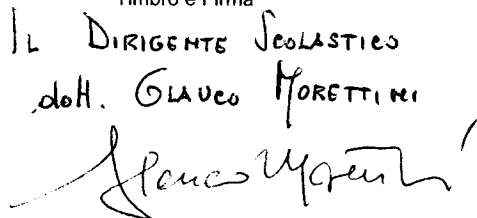 Timbro e Firma
IL DIRIGENTE SCOLASTICO
dott. GLAUCO MORETTINI
Glauco Morettini